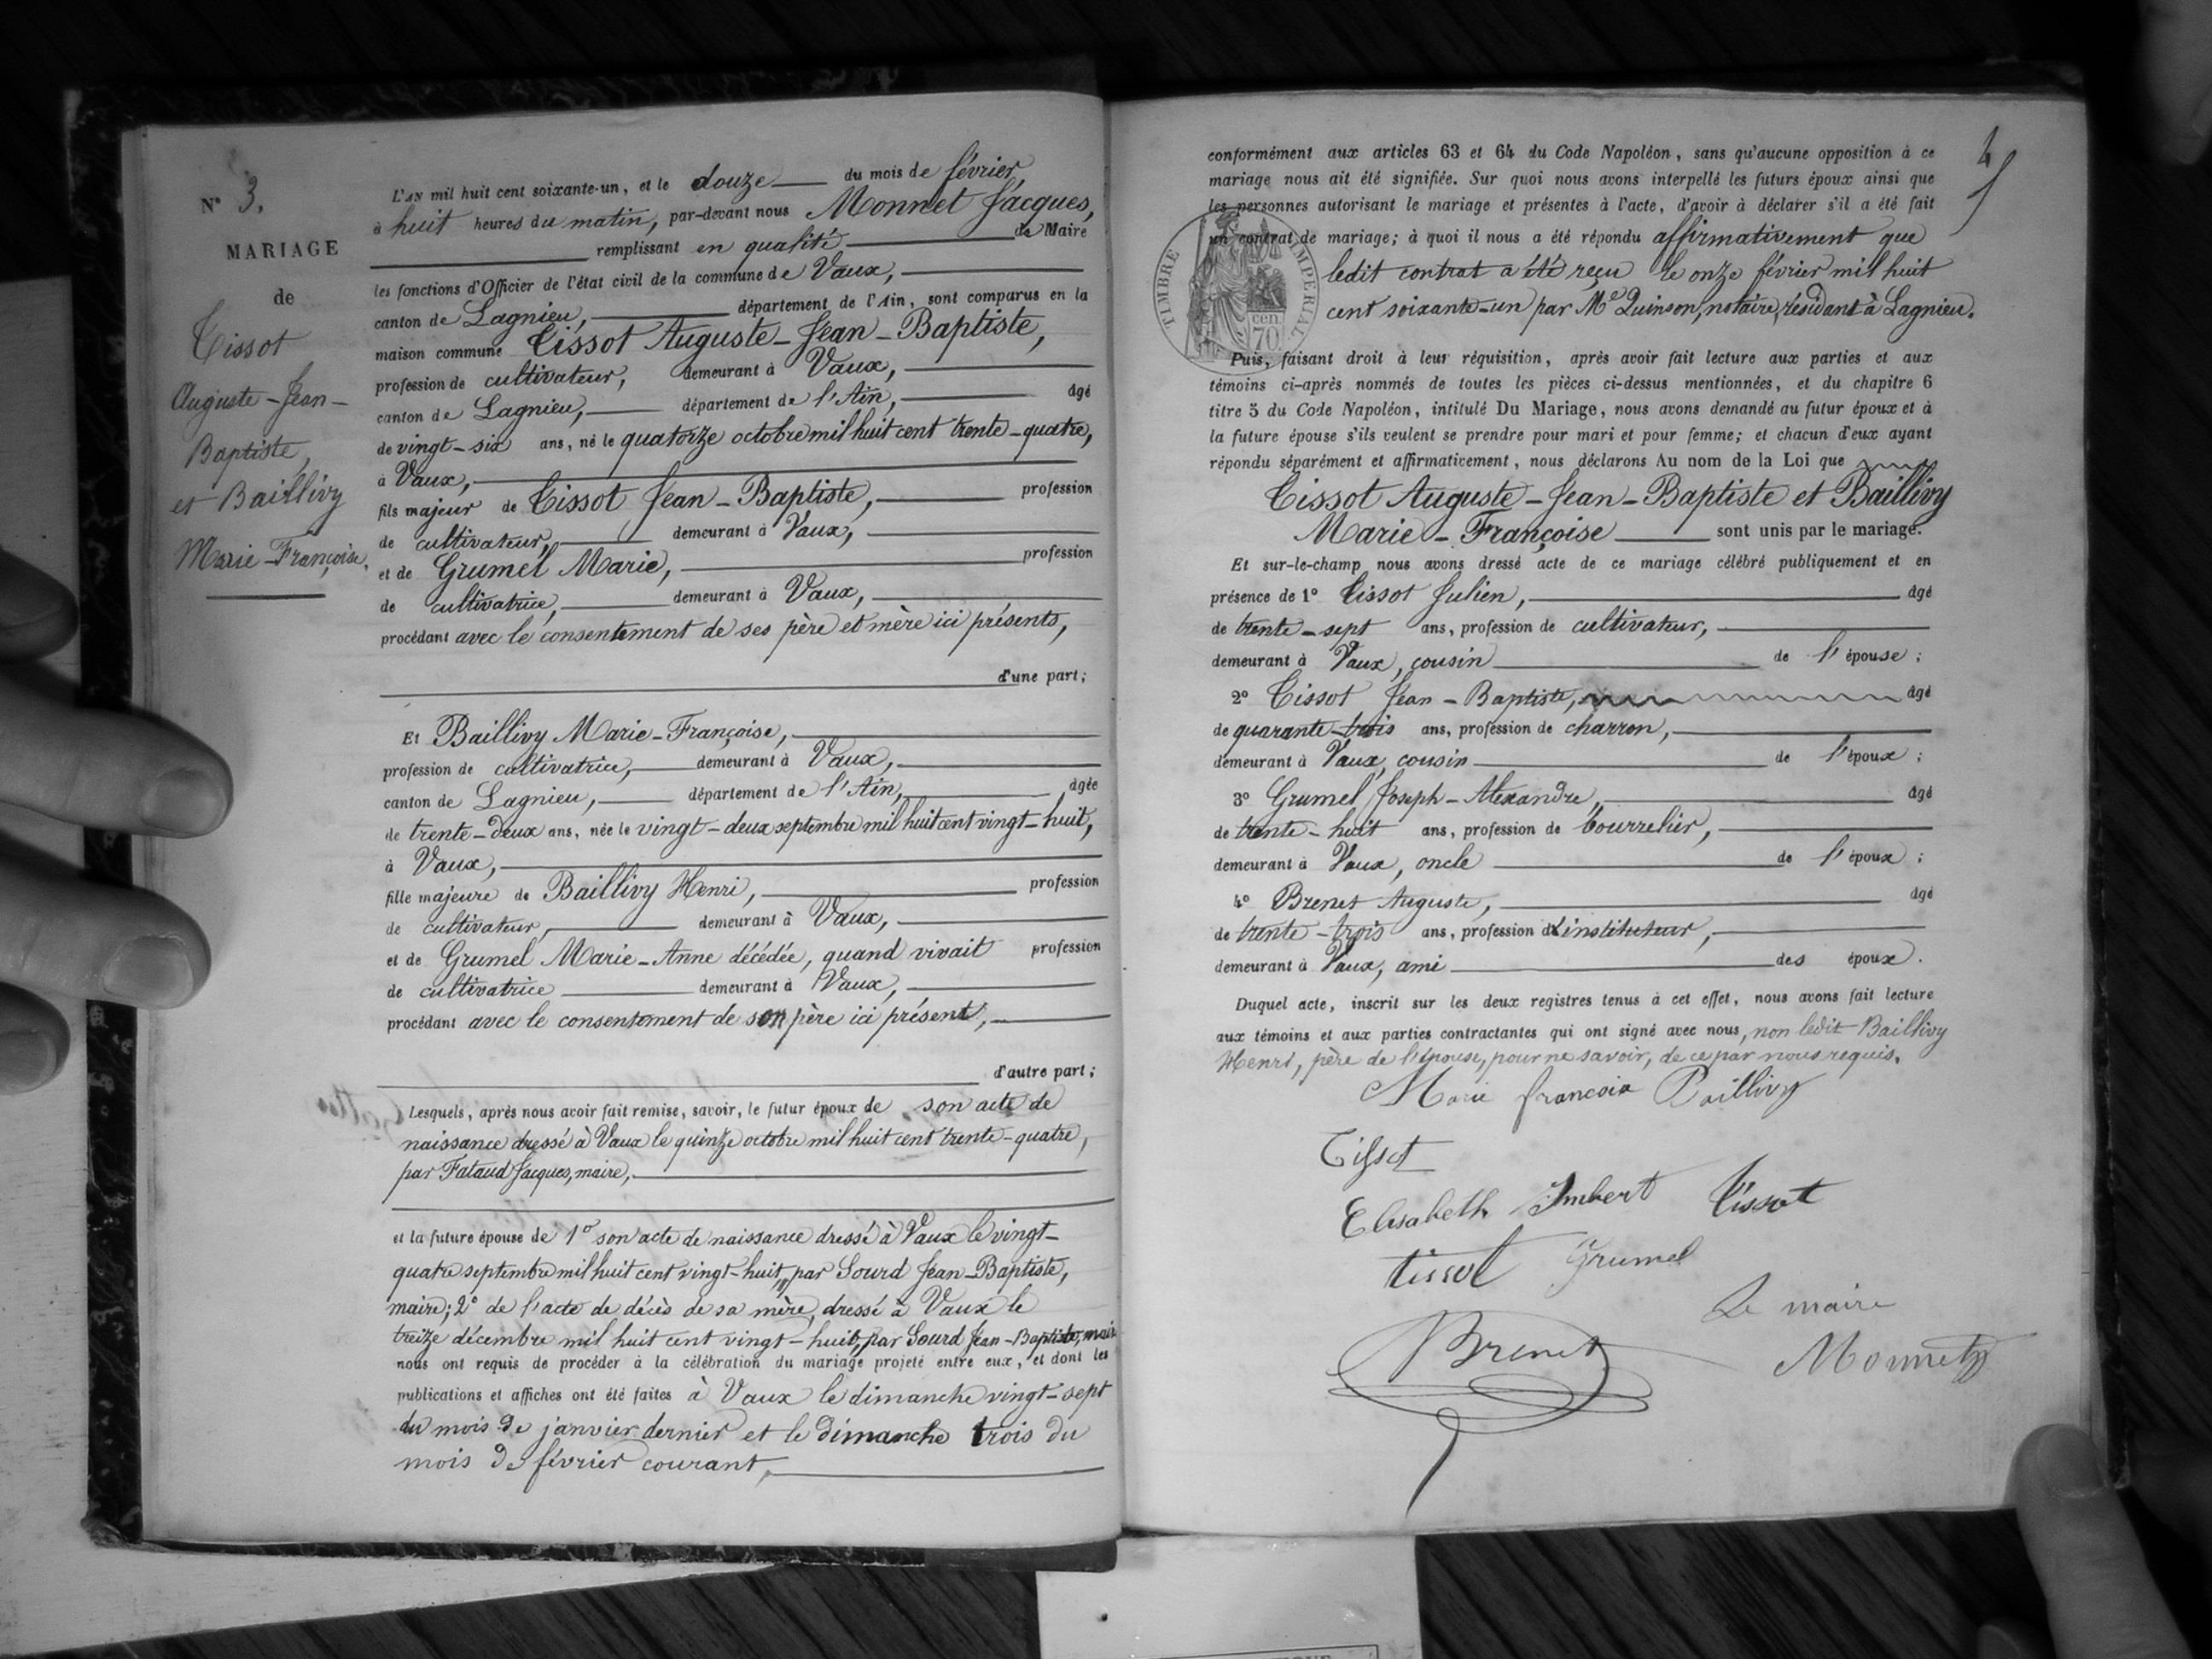 N° 3.
MARIAGE
de
Tissot
Auguste-Jean-
Baptiste,
et Baillivy
Marie-Françoise.
L'AN mil huit cent soixante-un, et le douze du mois de février,
à huit heures du matin, par-devant nous Monnet Jacques,
remplissant en qualité de Maire
les fonctions d'Officier de l'état civil de la commune de Vaux,
canton de Lagnieu, département de l'Ain, sont comparus en la
maison commune Tissot Auguste-Jean-Baptiste,
profession de cultivateur, demeurant à Vaux,
canton de Lagnieu, département de l'Ain, âgé
de vingt-six ans, né le quatorze octobre mil huit cent trente-quatre,
à Vaux,
fils majeur de Tissot Jean-Baptiste, profession
de cultivateur, demeurant à Vaux,
et de Grumel Marie, profession
de cultivatrice, demeurant à Vaux,
procédant avec le consentement de ses père et mère ici présents,
d'une part;
Et Baillivy Marie-Françoise,
profession de cultivatrice, demeurant à Vaux,
canton de Lagnieu, département de l'Ain, âgée
de trente-deux ans, née le vingt-deux septembre mil huit cent vingt-huit,
à Vaux,
fille majeure de Baillivy Henri, profession
de cultivateur, demeurant à Vaux,
et de Grumel Marie-Anne décédée, quand vivait profession
de cultivatrice demeurant à Vaux,
procédant avec le consentement de son père ici présent,
d'autre part;
Lesquels, après nous avoir fait remise, savoir, le futur époux de son acte de
naissance dressé à Vaux le quinze octobre mil huit cent trente-quatre,
par Fataud Jacques, maire,
et la future épouse de 1° son acte de naissance dressé à Vaux le vingt-
quatre septembre mil huit cent vingt-huit, par Sourd Jean-Baptiste,
maire; 2° de l'acte de décès de sa mère, dressé à Vaux le
treize décembre mil huit cent vingt-huit, par Sourd Jean-Baptiste, maire
nous ont requis de procéder à la célébration du mariage projeté entre eux, et dont les
publications et affiches ont été faites à Vaux le dimanche vingt-sept
du mois de janvier dernier et le dimanche trois du
mois de février courant,
4
conformément aux articles 63 et 64 du Code Napoléon, sans qu'aucune opposition à ce
mariage nous ait été signifiée. Sur quoi nous avons interpellé les futurs époux ainsi que
les personnes autorisant le mariage et présentes à l'acte, d'avoir à déclarer s'il a été fait
un contrat de mariage; à quoi il nous a été répondu affirmativement que
ledit contrat a été reçu le onze février mil huit
cent soixante-un par Me Quinson, notaire, résidant à Lagnieu.
TIMBRE IMPERIAL
cen
70
Puis, faisant droit à leur réquisition, après avoir fait lecture aux parties et aux
témoins ci-après nommés de toutes les pièces ci-dessus mentionnées, et du chapitre 6
titre 5 du Code Napoléon, intitulé Du Mariage, nous avons demandé au futur époux et à
la future épouse s'ils veulent se prendre pour mari et pour femme; et chacun d'eux ayant
répondu séparément et affirmativement, nous déclarons Au nom de la Loi que
Tissot Auguste-Jean-Baptiste et Baillivy
Marie-Françoise sont unis par le mariage.
Et sur-le-champ nous avons dressé acte de ce mariage célébré publiquement et en
présence de 1° Tissot Julien, âgé
de trente-sept ans, profession de cultivateur,
demeurant à Vaux, cousin de l'épouse;
2° Tissot Jean-Baptiste, âgé
de quarante-trois ans, profession de charron,
demeurant à Vaux, cousin de l'époux;
3° Grumel Joseph-Alexandre, âgé
de trente-huit ans, profession de bourrelier,
demeurant à Vaux, oncle de l'époux;
4° Brenet Auguste, âgé
de trente-trois ans, profession d'instituteur,
demeurant à Vaux, ami des époux.
Duquel acte, inscrit sur les deux registres tenus à cet effet, nous avons fait lecture
aux témoins et aux parties contractantes qui ont signé avec nous, non ledit Baillivy
Henri, père de l'épouse, pour ne savoir, de ce par nous requis.
Marie francoix Baillivy
Tissot
Elisabeth Imbert Tissot
tissot Grumel
Le maire
Brenet Monnet